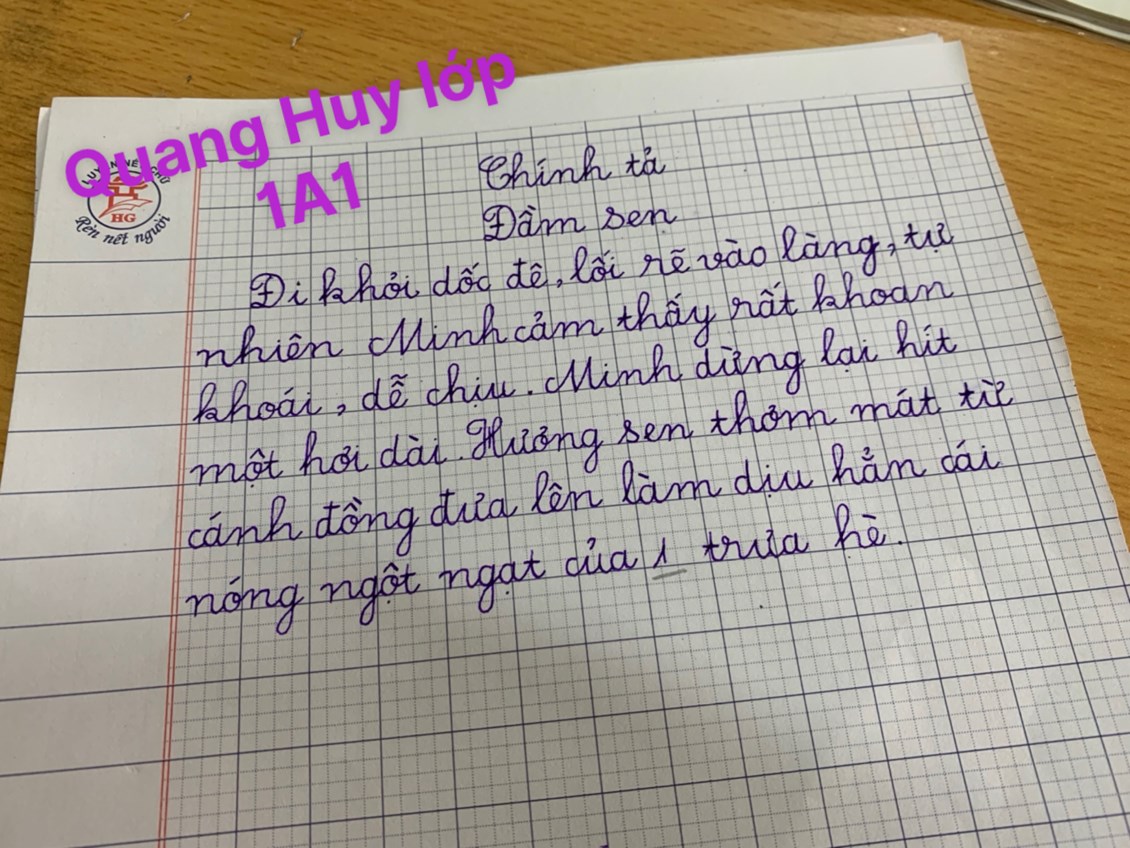 Quang Huy lớp
1A1
HG
Rèn nết người
Chính tả
Đầm sen
Đi khỏi dốc đê, lối rẽ vào làng, tự
nhiên Minh cảm thấy rất khoan
khoái, dễ chịu. Minh dừng lại hít
một hơi dài. Hương sen thơm mát từ
cánh đồng đưa lên làm dịu hẳn cái
nóng ngột ngạt của 1 trưa hè.